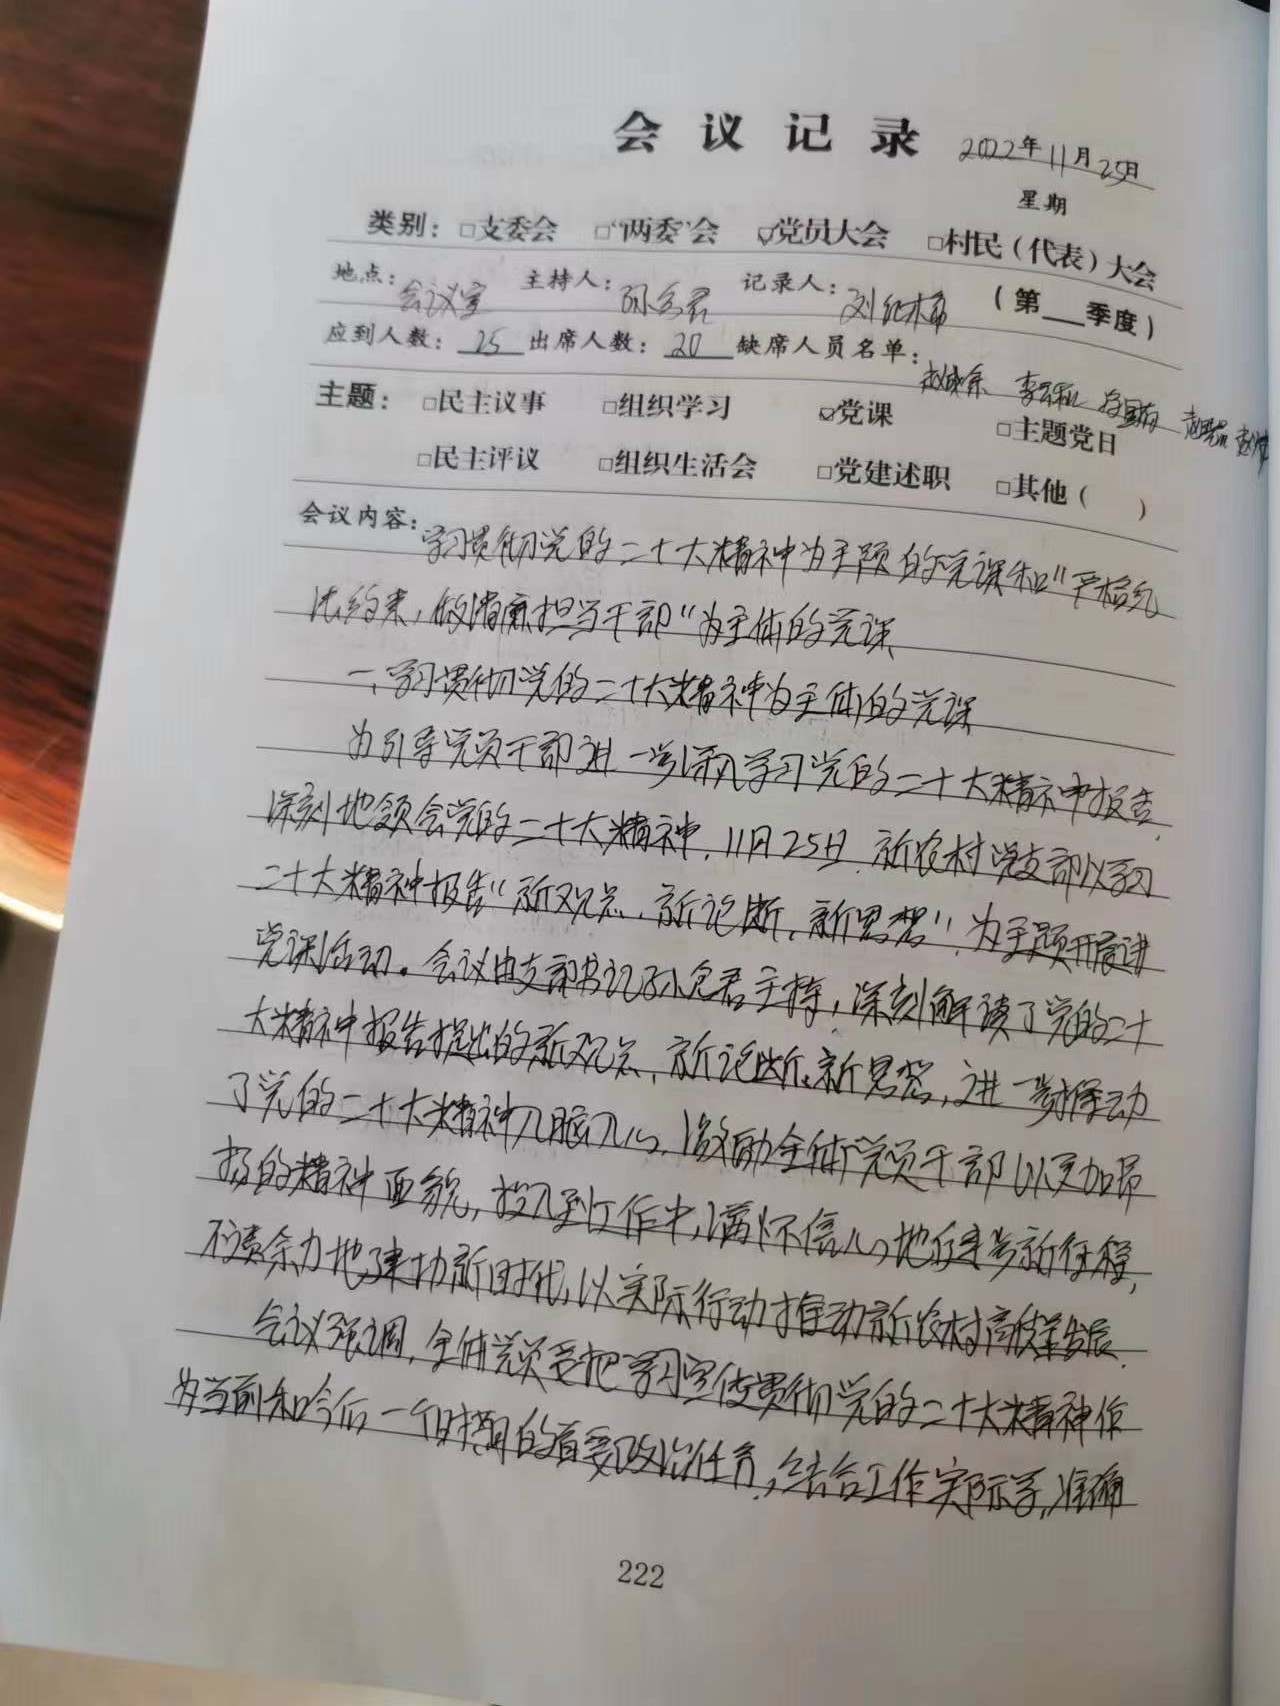 会议记录 2022年11月25日
星期
类别：□支委会 □“两委”会 ☑党员大会 □村民（代表）大会
地点：会议室 主持人：孙 君 记录人：刘 （第___季度）
应到人数：25 出席人数：20 缺席人员名单：
主题：□民主议事 □组织学习 ☑党课 □主题党日
□民主评议 □组织生活会 □党建述职 □其他（ ）
会议内容：学习贯彻党的二十大精神为主题的党课和“严格纪
法约束，做清廉担当干部“为主体的党课
一、学习贯彻党的二十大精神为主体的党课
为引导党员干部进一步深入学习党的二十大精神报告，
深刻地领会党的二十大精神，11月25日，新农村党支部以学习
二十大精神报告“新观点、新论断、新思想”，为主题开展讲
党课活动。会议由支部书记孙 君主持，深刻解读了党的二十
大精神报告提出的新观点、新论断、新思想，进一步推动
了党的二十大精神入脑入心，激励全体党员干部以更加昂
扬的精神面貌，投入到工作中，满怀信心地 新征程，
不遗余力地建功新时代，以实际行动推动新农村高质量发展。
会议强调，全体党员要把学习宣传贯彻党的二十大精神作
为当前和今后一个时期的首要政治任务，结合工作实际学，准确
222